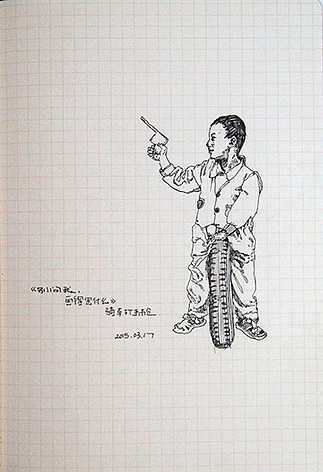 《别问我，
画得是什么》
骑车打手枪
2015.03.17